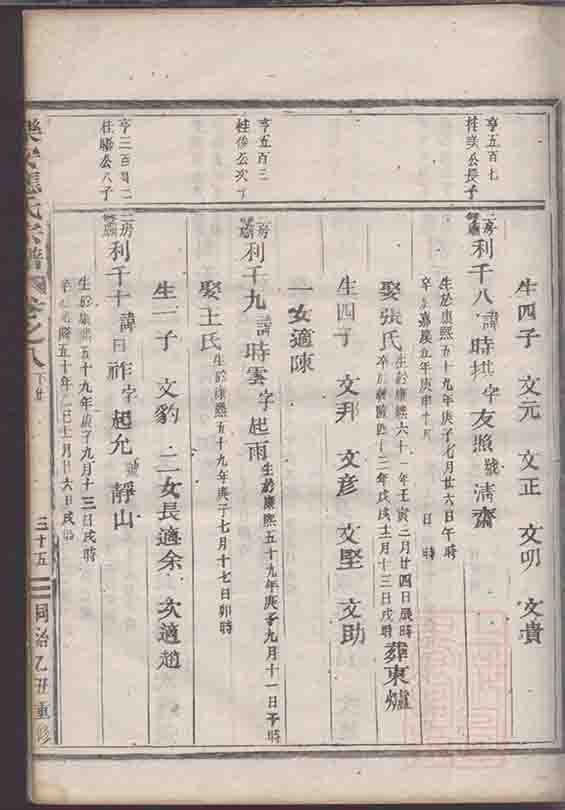 生四子 文元 文正 文卯 文貴
亨五百七
桂 公長子
房 利千八諱時 字友照號清齋
生於康熙五十九年庚子七月廿六日午時
卒 嘉慶五年庚申十月 日 時
娶張氏 生於康熙六十一年壬寅二月廿四日辰時
卒於 十三年戊戌十二月十三日戌時
葬東爐
生四子 文邦 文彥 文堅 文助
一女適陳
亨五百三
桂 公次子
房 利千九諱時雲字起雨 生於康熙五十九年庚子九月十一日子時
娶王氏 生於康熙五十九年庚子七月十七日卯時
生一子 文豹 二女長適余 次適趙
亨二百
桂 公八子
二房 利千十諱日祚字起允號靜山
生於康熙五十九年庚子九月十三日戌時
卒 隆五十年乙巳十月廿六日戌時
樂安應氏宗譜 卷之八下廿
三十五
同治乙丑重修